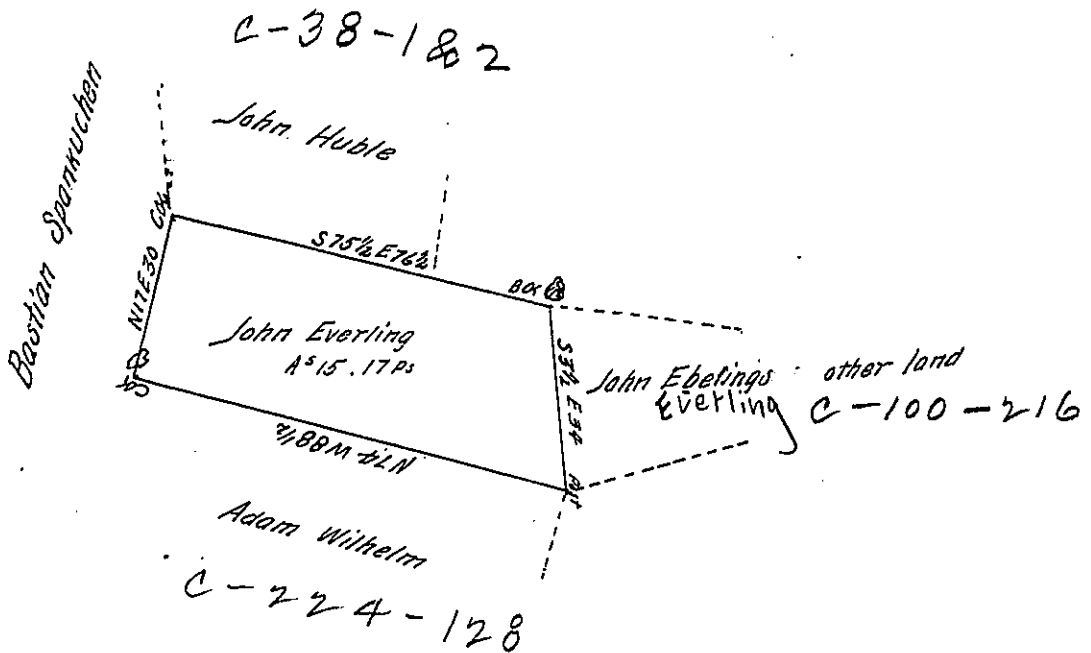 C-38-1 & 2
Bastian Spankuchen
John Huble
S 75½ E 76½
N 17 E 30
BO
John Everling
As 15 . 17 Ps
S 3½ E 34
Post
John Ebelings other land
Everling
C-100-216
N 74 W 88½
Adam Wilhelm
C-224-128